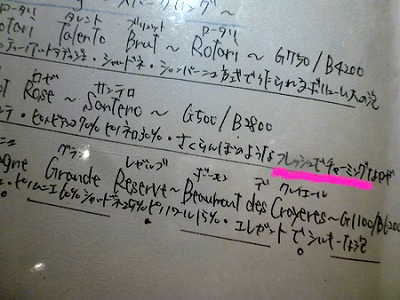 ロータリ タレント ブリュット ロータリ
Rotari Talento Brut ~ Rotari ~ G750/B4200
シャルドネ・シャンパーニュ方式で作られるボリューム大の泡
ロゼ サンテロ
Rose ~ Santero ~ G500/B2800
70% ピノネロ30%・さくらんぼのようなフレッシュでチャーミングなロゼ
グラン レゼルブ ボーモン デ クレイエール
Grande Reserve ~ Beaumont des Crayeres ~ G1100/B6200
ピノムニエ60% シャルドネ25% ピノノワール15%・エレガントでシルキーな泡